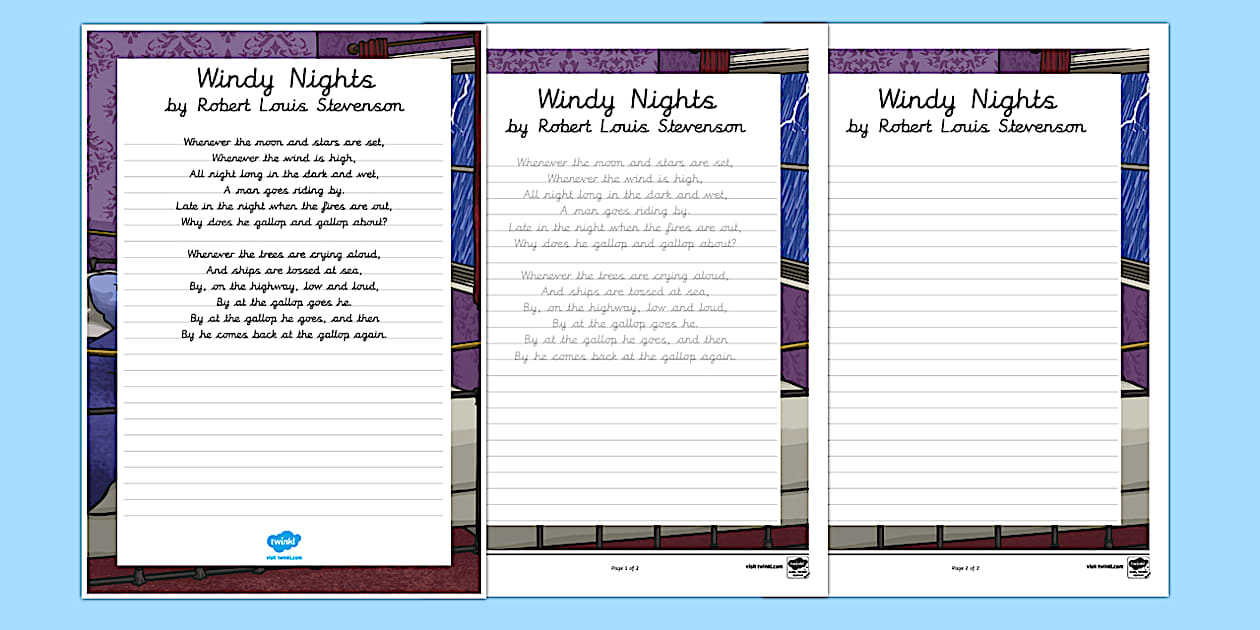 Windy Nights
by Robert Louis Stevenson
Whenever the moon and stars are set,
Whenever the wind is high,
All night long in the dark and wet,
A man goes riding by.
Late in the night when the fires are out,
Why does he gallop and gallop about?
Whenever the trees are crying aloud,
And ships are tossed at sea,
By, on the highway, low and loud,
By at the gallop goes he.
By at the gallop he goes, and then
By he comes back at the gallop again.
twinkl
visit twinkl.com
Windy Nights
by Robert Louis Stevenson
Whenever the moon and stars are set,
Whenever the wind is high,
All night long in the dark and wet,
A man goes riding by.
Late in the night when the fires are out,
Why does he gallop and gallop about?
Whenever the trees are crying aloud,
And ships are tossed at sea,
By, on the highway, low and loud,
By at the gallop goes he.
By at the gallop he goes, and then
By he comes back at the gallop again.
Page 1 of 2
visit twinkl.com
twinkl
Windy Nights
by Robert Louis Stevenson
Page 2 of 2
visit twinkl.com
twinkl